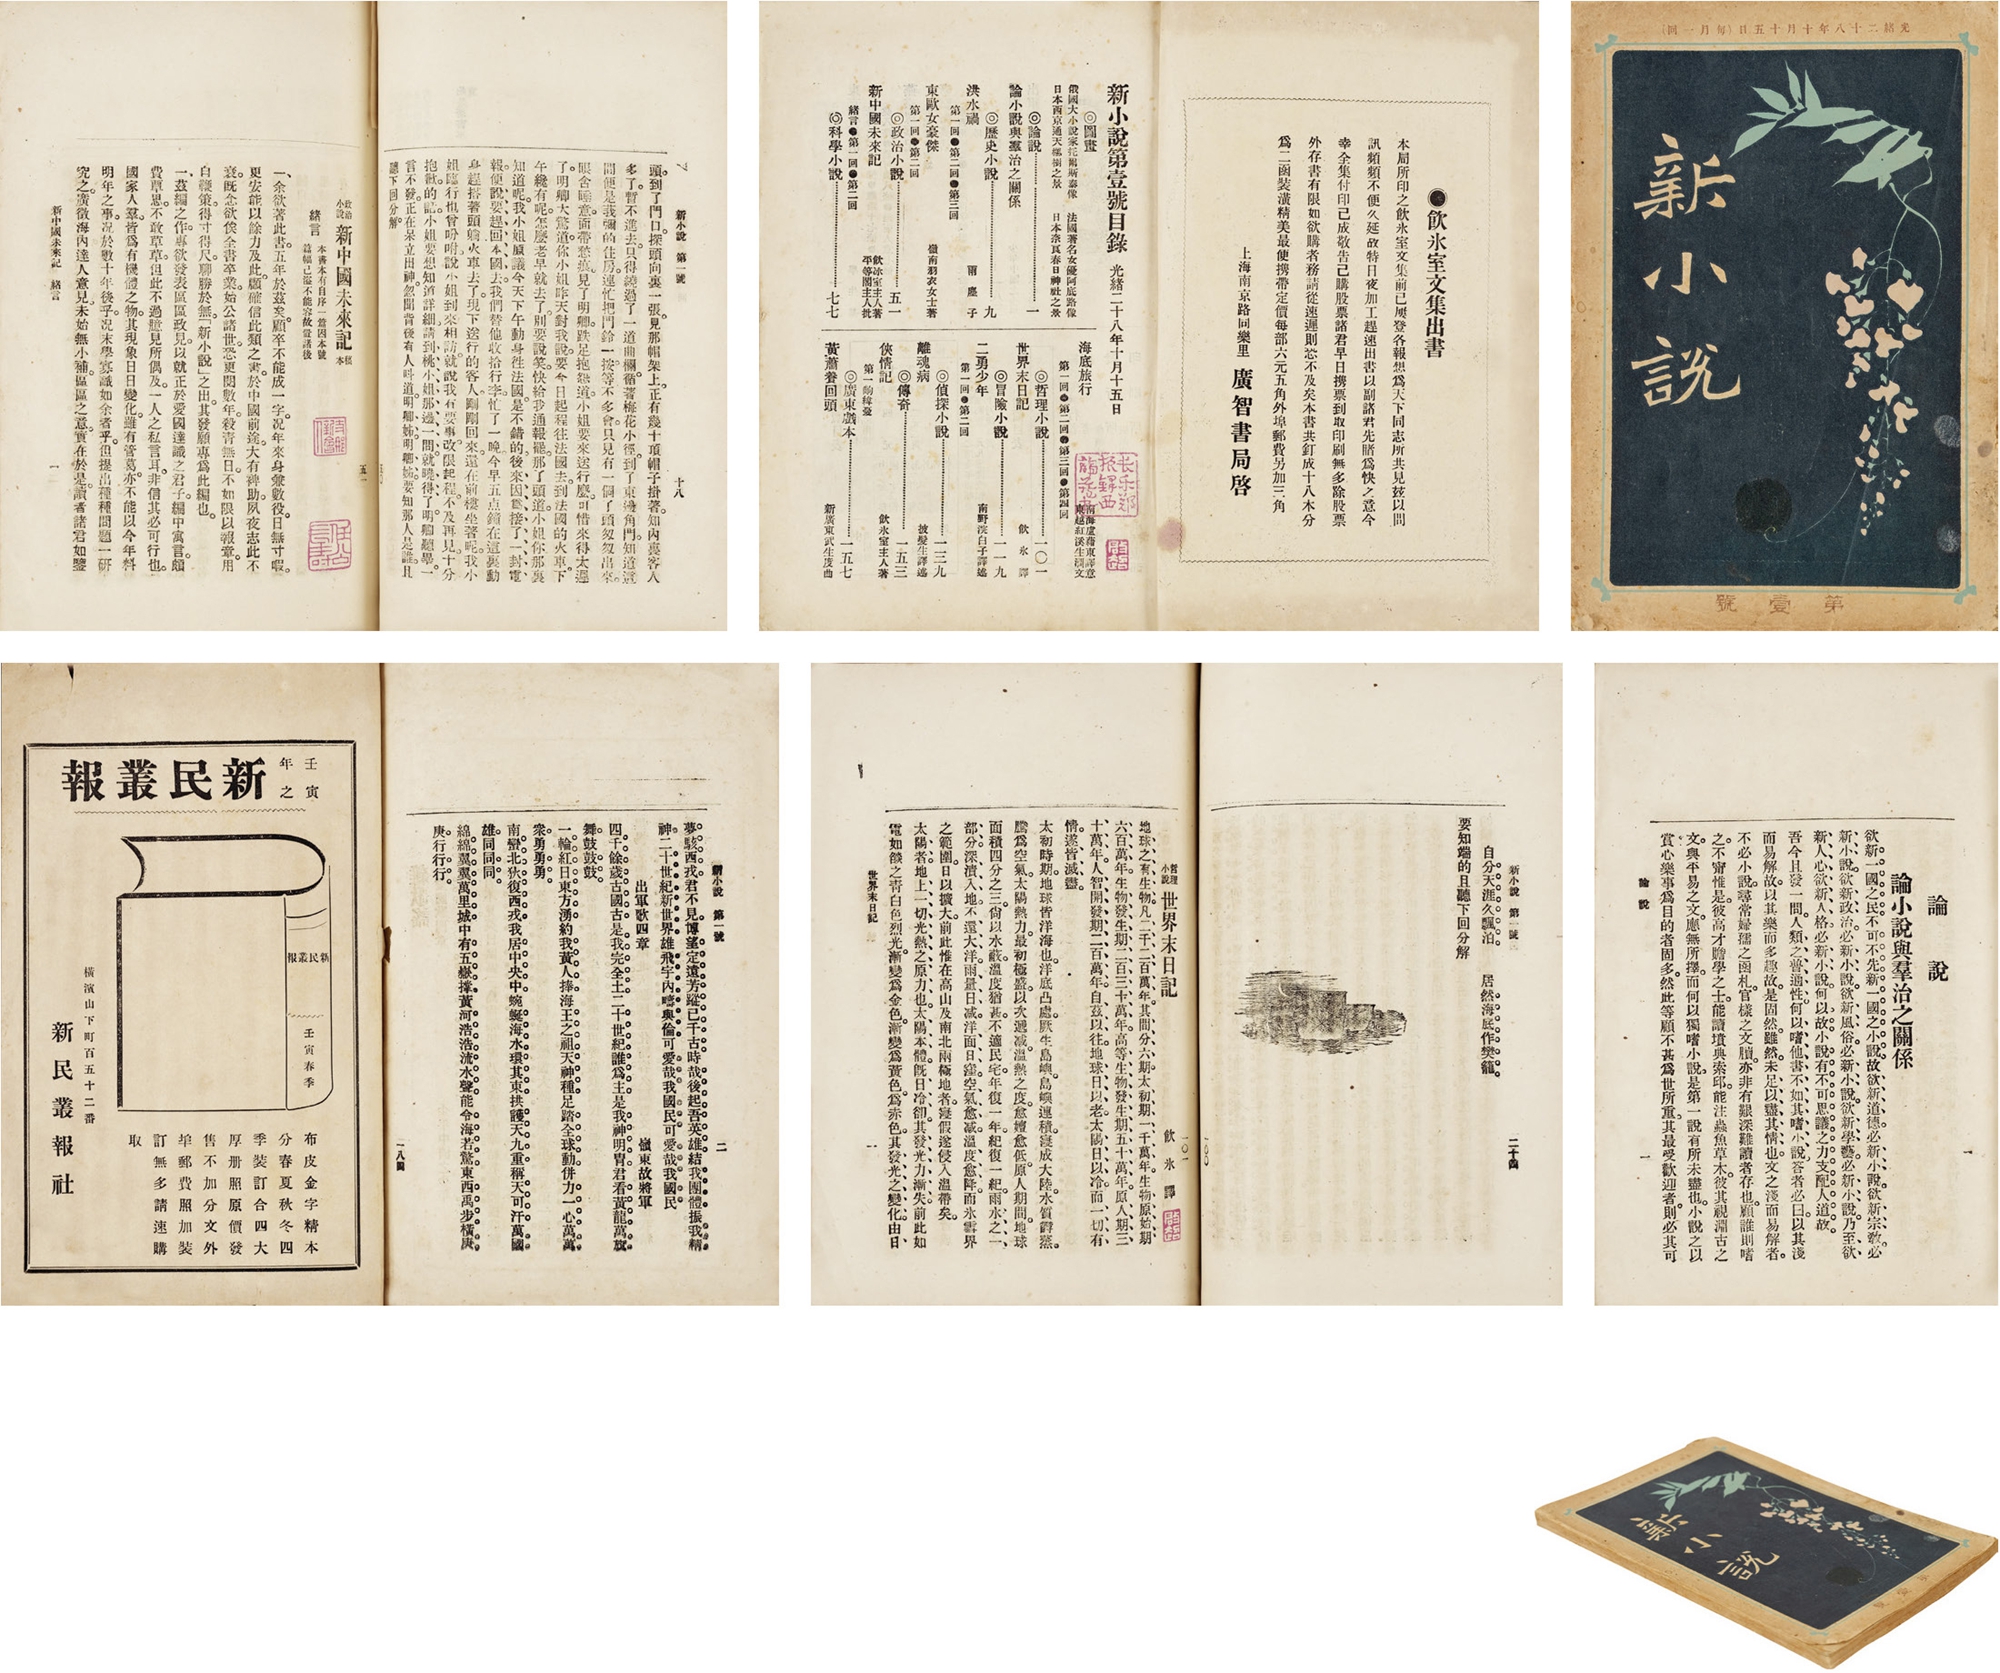 光緒二十八年十月十五日(每月一回)
新小說
第壹號
●飲氷室文集出書
本局所印之飲氷室文集前已屢登各報想爲天下同志所共見茲以問
訊頻頻不便久延故特日夜加工趕速出書以副諸君先睹爲快之意今
幸全集付印已成敬告已購股票諸君早日携票到取印刷無多除股票
外存書有限如欲購者務請從速遲則恐不及矣本書共釘成十八本分
爲二函裝潢精美最便携帶定價每部六元五角外埠郵費另加三角
上海南京路同樂里 廣智書局啓
新小說第壹號目錄 光緒二十八年十月十五日
◎圖畫
俄國大小說家托爾斯泰像 法國著名女優阿底路像
日本西京通天橋樹之景 日本奈良春日神社之景
◎論說 一
論小說與羣治之關係
◎歷史小說 九
洪水禍 雨塵子
第一回●第二回●第三回
東歐女豪傑 嶺南羽衣女士著
第一回●第二回
◎政治小說 五一
新中國未來記 飲冰室主人著 平等閣主人批
緒言●第一回●第二回
◎科學小說 七七
海底旅行 南海盧藉東譯意 東越紅溪生潤文
第一回●第二回●第三回●第四回
◎哲理小說 一〇一
世界末日記 飲氷譯
◎冒險小說 一一九
二勇少年 南野浣白子譯述
第一回●第二回
◎偵探小說 一三九
離魂病 披髮生譯述
◎傳奇 一五三
俠情記 飲氷室主人著
第一齣緯憂
◎廣東戲本 一五七
黃蕭養回頭 新廣東武生度曲
新小說 第一號 十八
頭到了門口探頭向裏一張見那帽架上正有幾十頂帽子掛著知內裏客人
多了暫不進去只得繞過了一道曲欄循著梅花小徑到了東邊角門知道這
間便是我彌的住房連忙把門鈴一按等不多會只見有一個丫頭匆匆出來
眼含睡意面帶愁痕見了明卿跌足抱怨道小姐要來送行麼可惜來得太遲
了明卿大驚道你小姐昨天對我說要今日起程往法國去到法國的火車下
午纔有呢怎麼老早就去了別要說笑快給我通報罷那了頭道小姐你那裏
知道呢我小姐原議今天下午動身往法國是不錯的後來因爲接了一封電
報便說要趕回本國去我們替他收拾行李忙了一晚今早五点鐘在這裏動
身趕搭著頭躺火車去了現下送行的客人剛剛回來還在前樓坐著呢我小
姐臨行也曾吩咐說小姐到來相訪就說我有要事改限起程不及再見十分
抱歉的話小姐要想知道詳細請到桃小姐那邊一問就曉得了明卿聽畢一
言不發正在呆立出神忽聞背後有人呌道明卿姊明卿姊要知那人是誰且
聽下回分解
政治小說 新中國未來記 稿本 五一
緒言 本書本有自序一篇因本號篇幅已溢不能容故置諸後
一、余欲著此書五年於茲矣顧卒不能成一字况年來身兼數役日無寸暇
更安能以餘力及此顧確信此類之書於中國前途大有裨助夙夜志此不
衰既念欲俟全書卒業始公諸世恐更閱數年殺青無日不如限以報章用
自鞭策得寸得尺聊勝於無「新小說」之出其發願專爲此編也
一、茲編之作專欲發表區區政見以就正於愛國達識之君子編中寓言頗
費覃思不敢草草但此不過臆見所偶及一人之私言耳非信其必可行也
國家人羣皆爲有機體之物其現象日日變化雖有管葛亦不能以今年料
明年之事况於數十年後乎况末學寡識如余者乎但提出種種問題一研
究之廣徵海內達人意見未始無小補區區之意實在於是讀者諸君如鑒
新中國未來記 緒言 一
論說
論小說與羣治之關係
欲新一國之民不可不先新一國之小說故欲新道德必新小說欲新宗敎必
新小說欲新政治必新小說欲新風俗必新小說欲新學藝必新小說乃至欲
新人心欲新人格必新小說何以故小說有不可思議之力支配人道故
吾今且發一問人類之普通性何以嗜他書不如其嗜小說答者必曰以其淺
而易解故以其樂而多趣故是固然雖然未足以盡其情也文之淺而易解者
不必小說尋常婦孺之函札官樣之文牘亦非有艱深難讀者存也顧誰則嗜
之不甯惟是彼高才贍學之士能讀墳典索邱能注蟲魚草木彼其視淵古之
文與平易之文應無所擇而何以獨嗜小說是第一說有所未盡也小說之以
賞心樂事爲目的者固多然此等顧不甚爲世所重其最受歡迎者則必其可
論說 一
新小說 第一號 二十四
自分天涯久飄泊 居然海底作樊籠
要知端的且聽下回分解
一〇〇
哲理小說 世界末日記 飲氷譯 一〇一
地球之有生物凡二千二百萬年其間分六期太初期一千萬年生物原始期
六百萬年生物發生期二百三十萬年高等生物發生期五十萬年原人期三
十萬年人智開發期二百萬年自茲以往地球日以老太陽日以冷而一切有
情遂皆滅盡
太初時期地球皆洋海也洋底凸處厥生島嶼島嶼連積寖成大陸水質欝蒸
騰爲空氣太陽熱力最初極盛以次遞減溫熱之度愈嬗愈低原人期間地球
面積四分之三尙以水蔽溫度猶甚不適民宅年復一年紀復一紀雨水之一
部分深漬入地不還大洋雨量日减洋面日窪空氣愈减溫度愈降而氷雪界
之範圍日以擴大前此惟在高山及南北兩極地者寖假遂侵入溫帶矣
太陽者地上一切光熱之原力也太陽本體既日冷卻其發光力漸失前此如
電如燄之靑白色烈光漸變爲金色漸變爲黃色爲赤色其發光之變化由日
世界末日記 一
新小說 第一號 二
夢駭西戎君不見博望定遠芳蹤已千古時哉後起吾英雄結我團體振我精
神二十世紀新世界雄飛宇內疇與倫可愛哉我國民可愛哉我國民
出軍歌四章 嶺東故將軍
四千餘歲古國古是我完全土二十世紀誰爲主是我神明冑君看黃龍萬旗
舞鼓鼓鼓
一輪紅日東方湧約我黃人捧海王之祖天神種足踏全球動併力一心萬萬
衆勇勇勇
南蠻北狄復西戎我居中央中蜿蜒海水環其東拱護天九重稱天可汗萬國
雄同同同
綿綿翼翼萬里城中有五嶽撐黃河浩浩流水聲能令海若驚東西禹步橫庚
庚行行行
一八四
壬寅年之
新民叢報
新民叢報
壬寅春季
布皮金字精本
分春夏秋冬四
季裝訂合四大
厚册照原價發
售不加分文外
埠郵費照加裝
訂無多請速購
取
橫濱山下町百五十二番
新民叢報社
新小說